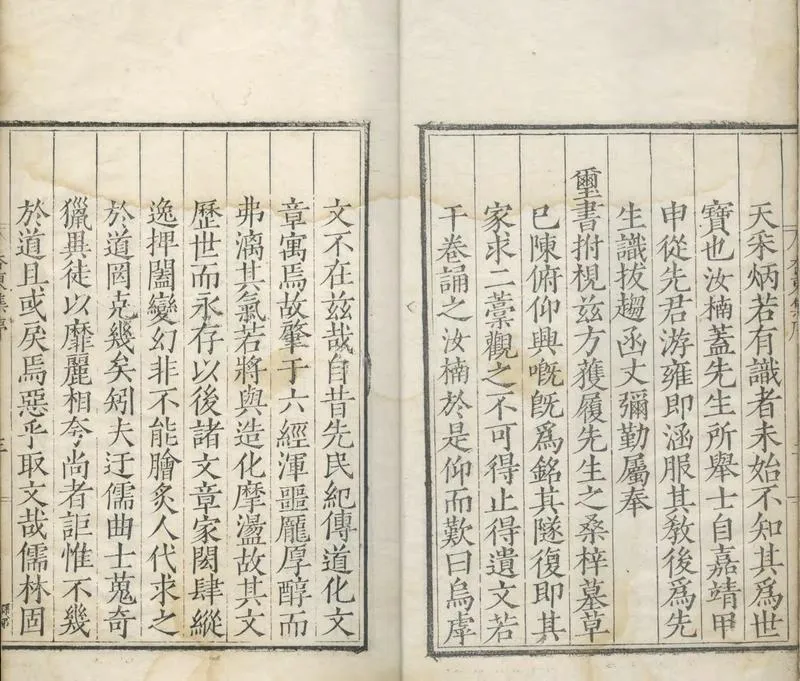 天采炳若有識者未始不知其為世
寶也汝楠蓋先生所舉士自嘉靖甲
申從先君游雍即涵服其敎後為先
生識拔趨函丈彌勤屬奉
璽書拊梘茲方獲履先生之桑梓墓草
已陳俯仰興嘅旣為銘其隧復即其
家求二藁觀之不可得止得遺文若
干卷誦之汝楠於是仰而歎曰烏虖
文不在茲哉自昔先民紀傳道化文
章寓焉故肇于六經渾噩龐厚醇而
弗漓其氣若將與造化摩盪故其文
歷世而永存以後諸文章家閎肆縱
逸押闔變幻非不能膾炙人代求之
於道罔克幾矣矧夫迂儒曲士蒐奇
獵異徒以靡麗相夸尚者詎惟不幾
於道且或戾焉惡乎取文哉儒林固